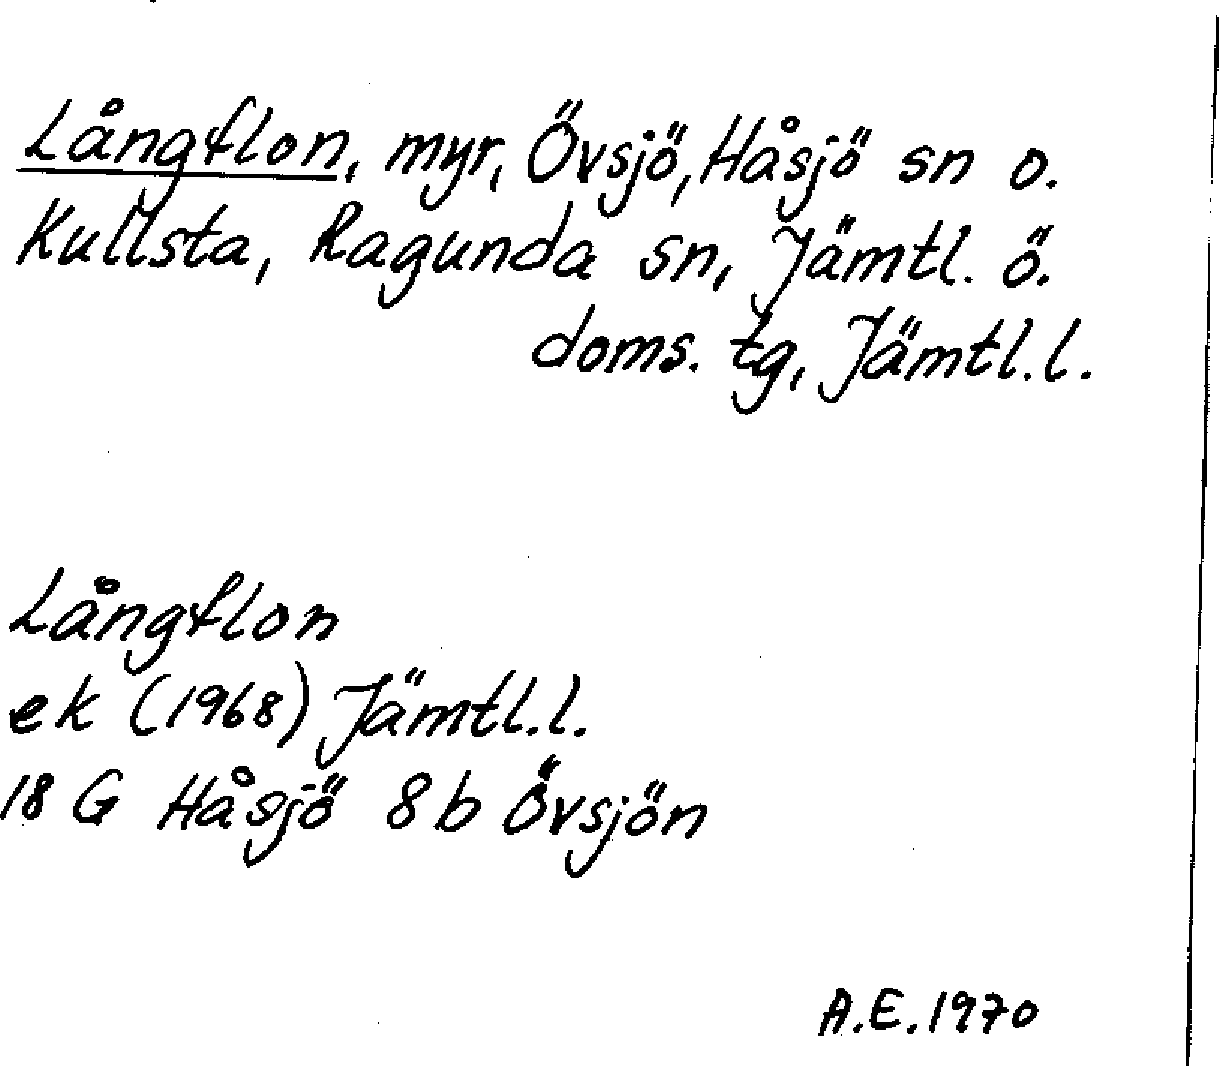 Långflon, myr, Övsjö, Håsjö sn o.
Kullsta, Ragunda sn, Jämtl. ö.
doms. tg, Jämtl. l.
Långflon
ek (1968) Jämtl. l.
18 G Håsjö 8 b Övsjön
A.E. 1970